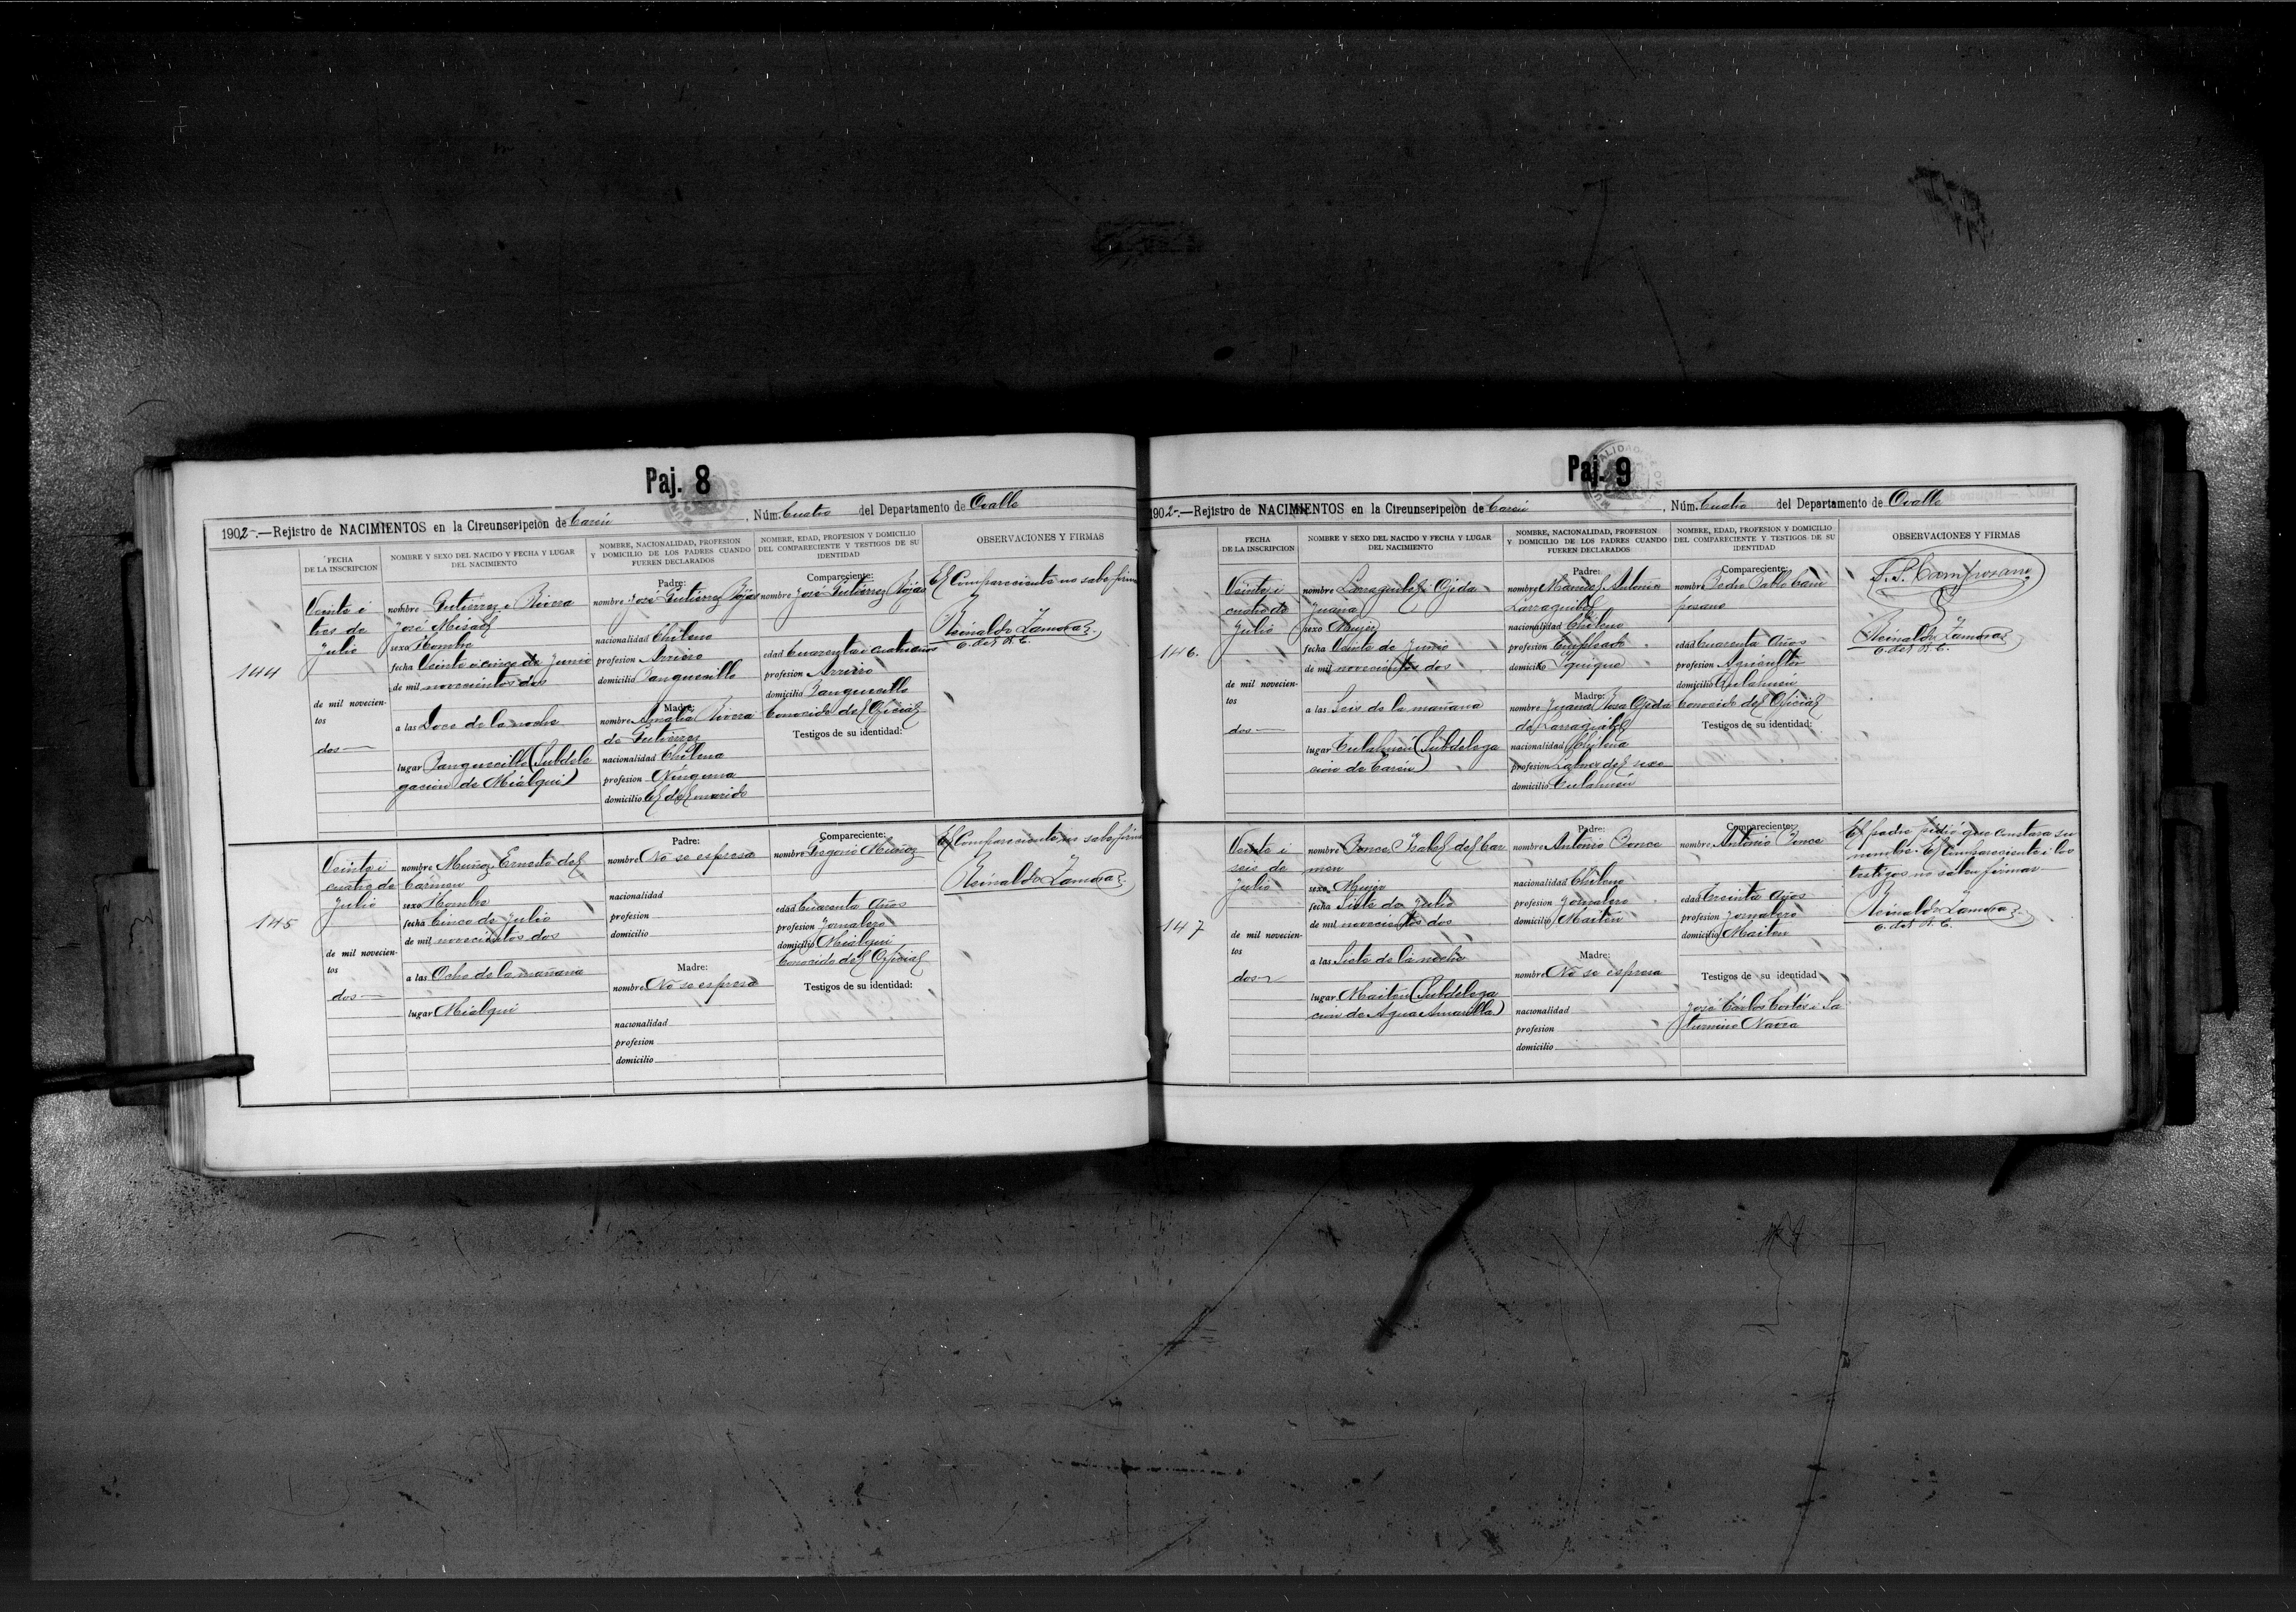 Paj. 8
1902-.—Rejistro de NACIMIENTOS en la Circunscripcion de Carén, Núm. Cuatro del Departamento de Ovalle
FECHA
DE LA INSCRIPCION
NOMBRE Y SEXO DEL NACIDO Y FECHA Y LUGAR
DEL NACIMIENTO
NOMBRE, NACIONALIDAD, PROFESION
Y DOMICILIO DE LOS PADRES CUANDO
FUEREN DECLARADOS
NOMBRE, EDAD, PROFESION Y DOMICILIO
DEL COMPARECIENTE Y TESTIGOS DE SU
IDENTIDAD
OBSERVACIONES Y FIRMAS
144
Veinte i
tres de
Julio
de mil novecien-
tos
dos
nombre Gutiérrez i Rivera
José Misael
sexo Hombre
fecha Veinte i cinco de Junio
de mil novecientos dos
a las Doce de la noche
lugar Panguecillo (Subdele
gacion de Mialqui)
Padre:
nombre José Gutiérrez Rojas
nacionalidad Chileno
profesion Arriero
domicilio Panguecillo
Madre:
nombre Amalia Rivera
de Gutiérrez
nacionalidad Chilena
profesion Ninguna
domicilio El del marido
Compareciente:
nombre José Gutiérrez Rojas
edad Cuarenta i cuatro años
profesion Arriero
domicilio Panguecillo
Conocido del Oficial
Testigos de su identidad:
El Compareciente no sabe firmar
Reinaldo Zamora Z.
O. del R. C.
145
Veinte i
cuatro de
Julio
de mil novecien-
tos
dos
nombre Muñoz, Ernesto del
Cármen
sexo Hombre
fecha Cinco de Julio
de mil novecientos dos
a las Ocho de la mañana
lugar Mialqui
Padre:
nombre No se espresa
nacionalidad
profesion
domicilio
Madre:
nombre No se espresa
nacionalidad
profesion
domicilio
Compareciente:
nombre Gregorio Muñoz
edad Cuarenta Años
profesion Jornalero
domicilio Mialqui
Conocido del Oficial
Testigos de su identidad:
El Compareciente no sabe firmar
Reinaldo Zamora Z.
Paj. 9
1902-.—Rejistro de NACIMIENTOS en la Circunscripcion de Carén, Núm. Cuatro del Departamento de Ovalle
FECHA
DE LA INSCRIPCION
NOMBRE Y SEXO DEL NACIDO Y FECHA Y LUGAR
DEL NACIMIENTO
NOMBRE, NACIONALIDAD, PROFESION
Y DOMICILIO DE LOS PADRES CUANDO
FUEREN DECLARADOS
NOMBRE, EDAD, PROFESION Y DOMICILIO
DEL COMPARECIENTE Y TESTIGOS DE SU
IDENTIDAD
OBSERVACIONES Y FIRMAS
146.
Veinte i
cuatro de
Julio
de mil novecien-
tos
dos
nombre Larraguibel i Ojeda
Juana
sexo Mujer
fecha Veinte de Junio
de mil novecientos dos
a las Seis de la mañana
lugar Tulahuén (Subdelega
cion de Carén)
Padre:
nombre Manuel Antonio
Larraguibel
nacionalidad Chileno
profesion Empleado
domicilio Iquique
Madre:
nombre Juana Rosa Ojeda
de Larraguibel
nacionalidad Chilena
profesion Labores del sexo
domicilio Tulahuén
Compareciente:
nombre Pedro Pablo Cam
posano
edad Cuarenta Años
profesion Agricultor
domicilio Tulahuén
Conocido del Oficial
Testigos de su identidad:
P. P. Camposano
Reinaldo Zamora Z.
O. del R. C.
147
Veinte i
seis de
Julio
de mil novecien-
tos
dos
nombre Ponce, Isabel del Car
men
sexo Mujer
fecha Siete de Julio
de mil novecientos dos
a las Siete de la noche
lugar Maiten (Subdelega
cion de Agua Amarilla)
Padre:
nombre Antonio Ponce
nacionalidad Chileno
profesion Jornalero
domicilio Maiten
Madre:
nombre No se espresa
nacionalidad
profesion
domicilio
Compareciente:
nombre Antonio Ponce
edad Treinta Años
profesion Jornalero
domicilio Maiten
Testigos de su identidad
José Cárlos Cortés i Sa
turnino Navea
El padre pidió que constara su
nombre. El Compareciente i los
testigos no saben firmar
Reinaldo Zamora Z.
O. del R. C.